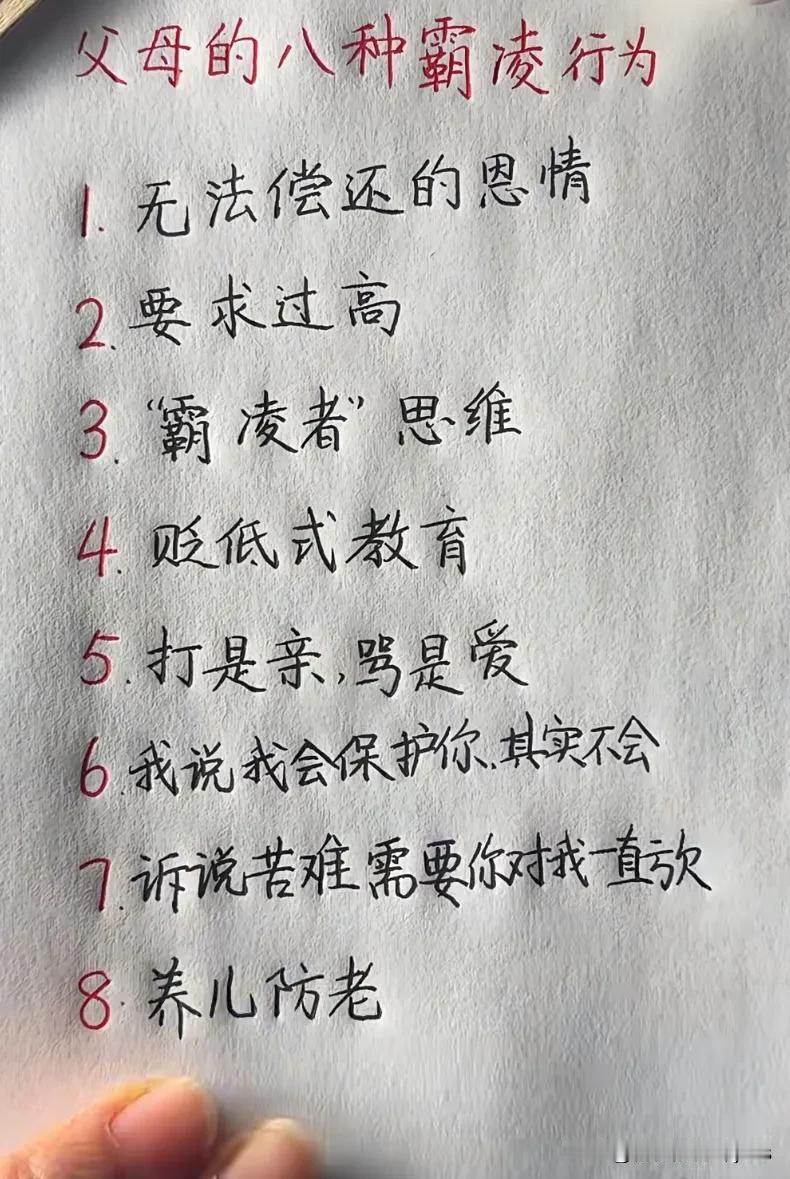 父母的八种霸凌行为
1. 无法偿还的恩情
2. 要求过高
3. "霸凌者"思维
4. 贬低式教育
5. 打是亲,骂是爱
6. 我说我会保护你,其实不会
7. 诉说苦难需要你对我一直亏欠
8. 养儿防老